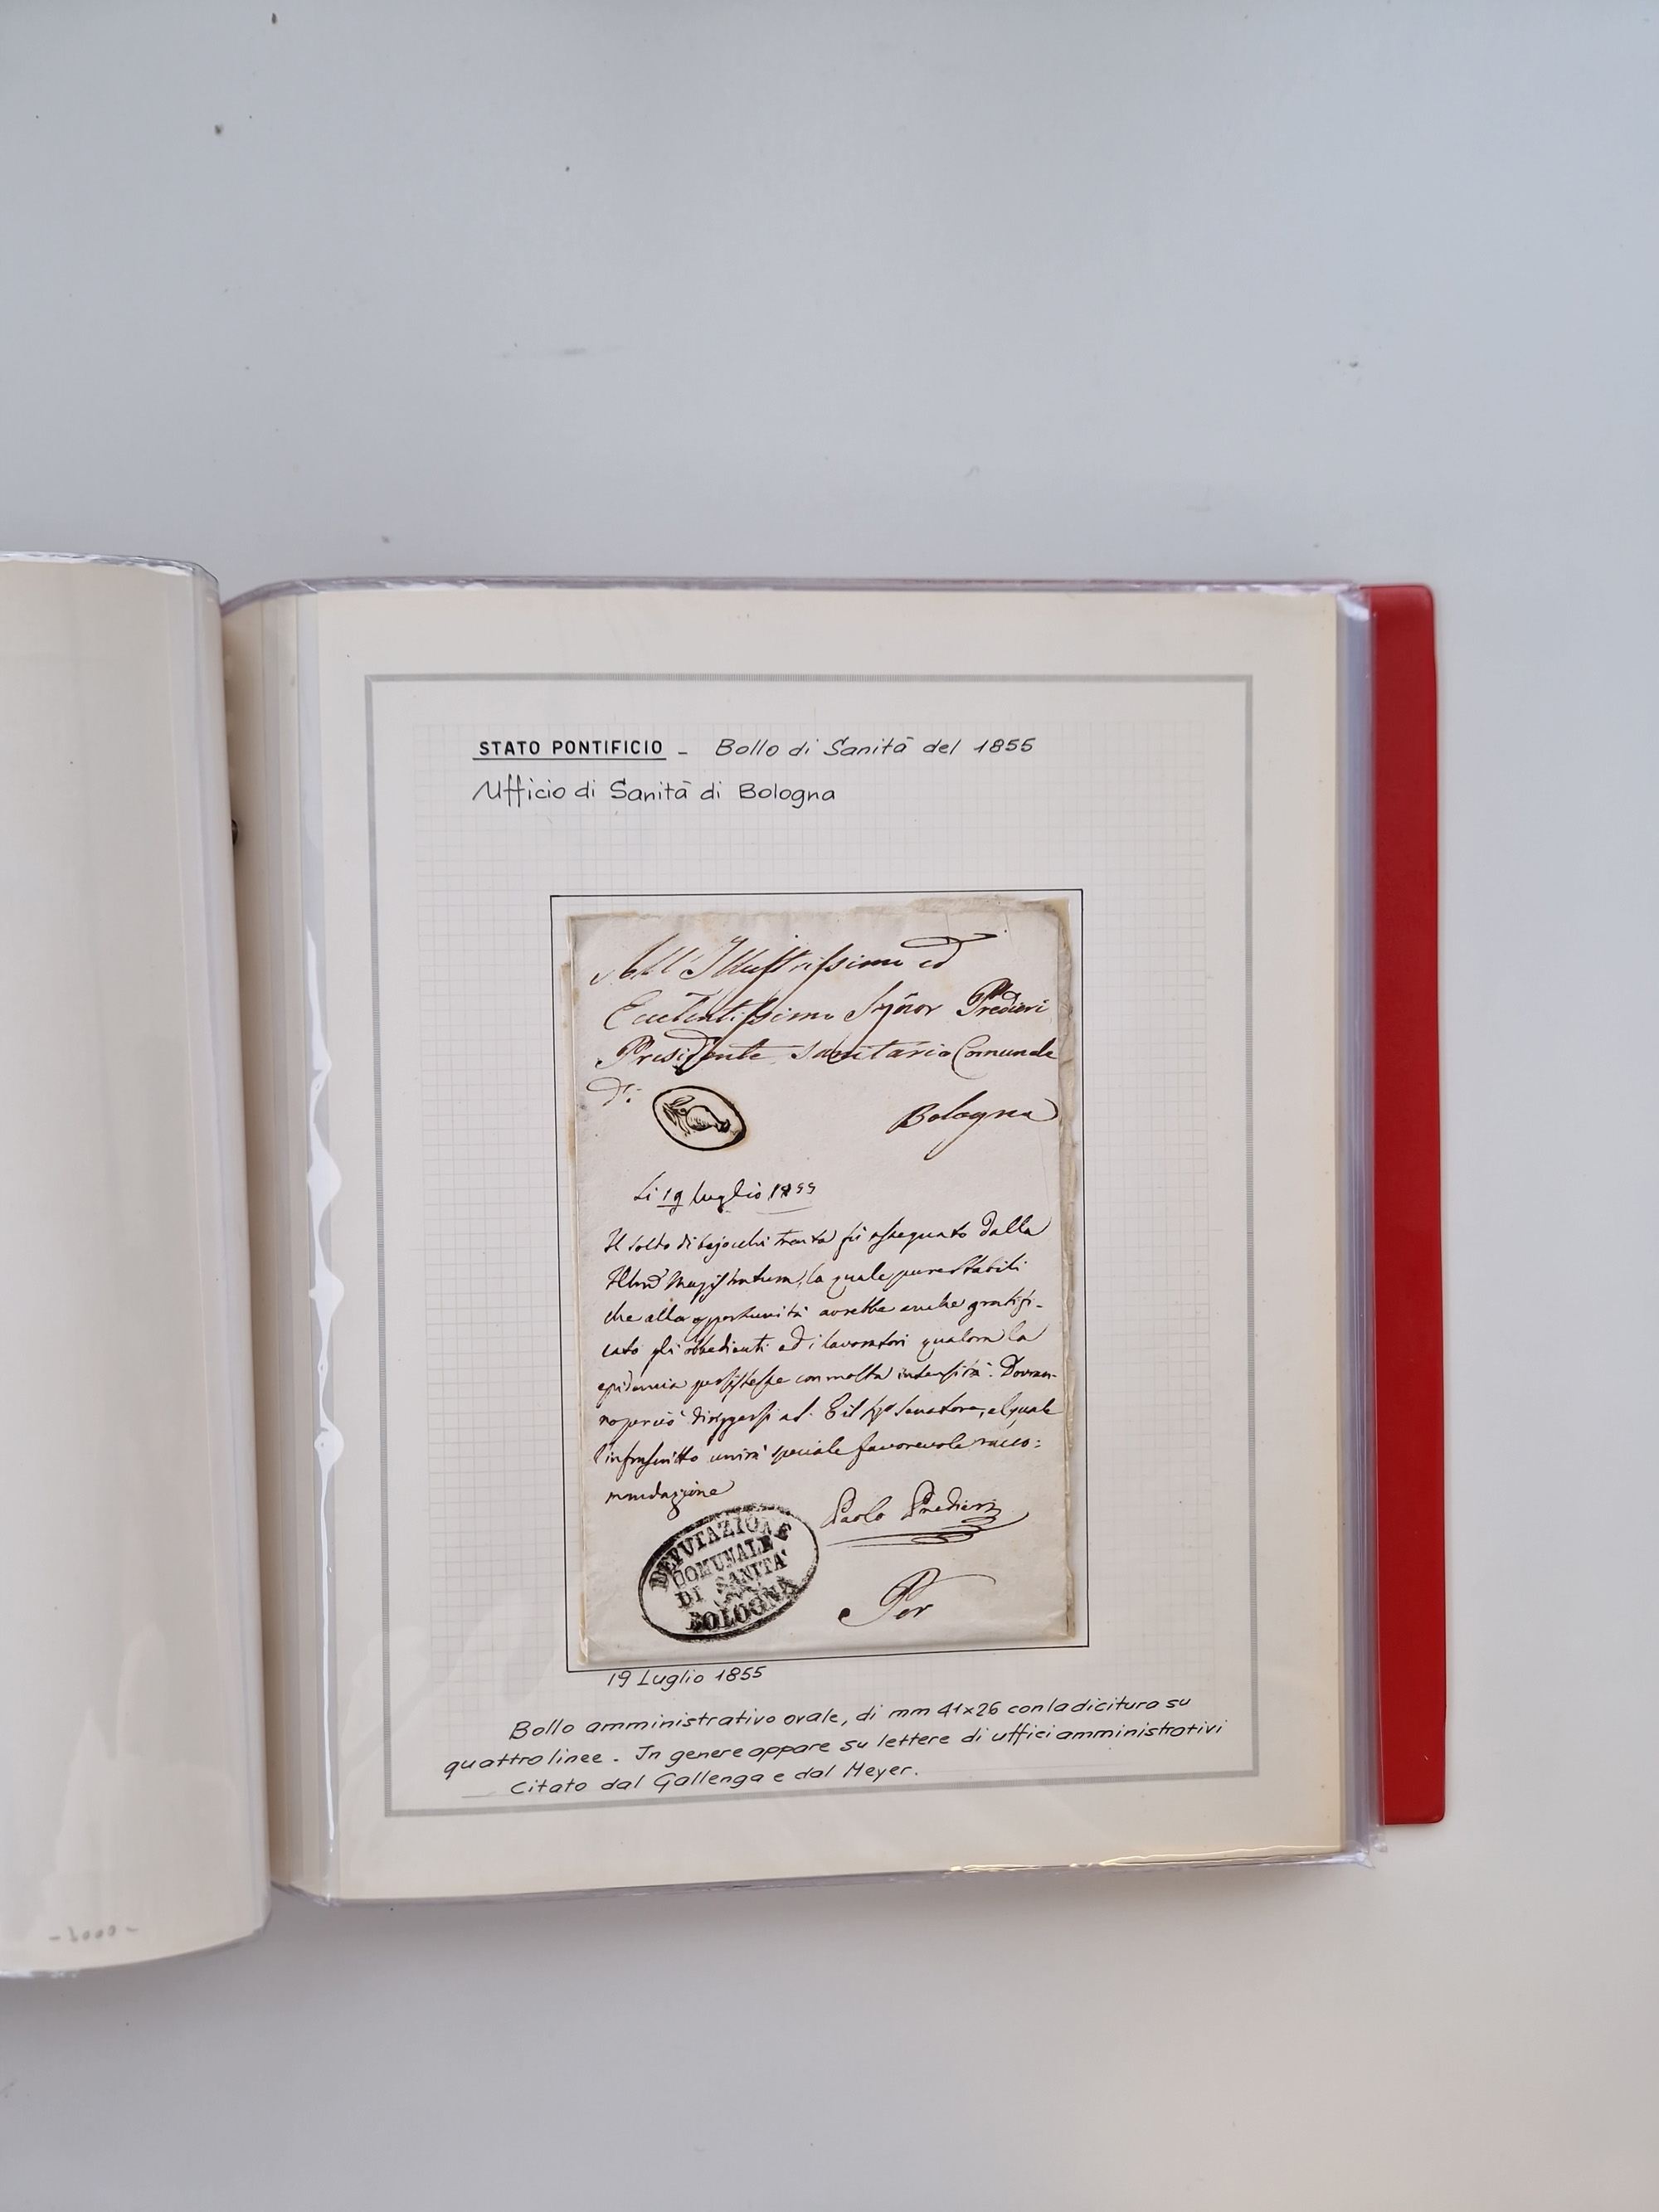 STATO PONTIFICIO - Bollo di Sanità del 1855
Ufficio di Sanità di Bologna
All' Illustrissimo ed
Eccellentissimo Signor Predieri
Presidente Sanitario Comunale
di
Bologna
Li 19 luglio 1855
Il soldo di bajocchi trenta fù assegnato dalla
Magistratura, la quale pure stabilì
che alla opportunità avrebbe anche gratifi-
cato gli obbedienti ed i lavoratori qualora la
epidemia persistesse con molta intensità. Dovran-
no perciò diriggersi al Senatore, al quale
l'infrascritto unirà speciale favorevole racco:
mandazione
Paolo Predieri
DEPUTAZIONE
COMUNALE
DI SANITA'
BOLOGNA
Per
19 Luglio 1855
Bollo amministrativo ovale, di mm 41x26 con la dicitura su
quattro linee. In genere appare su lettere di uffici amministrativi
Citato dal Gallenga e dal Meyer.